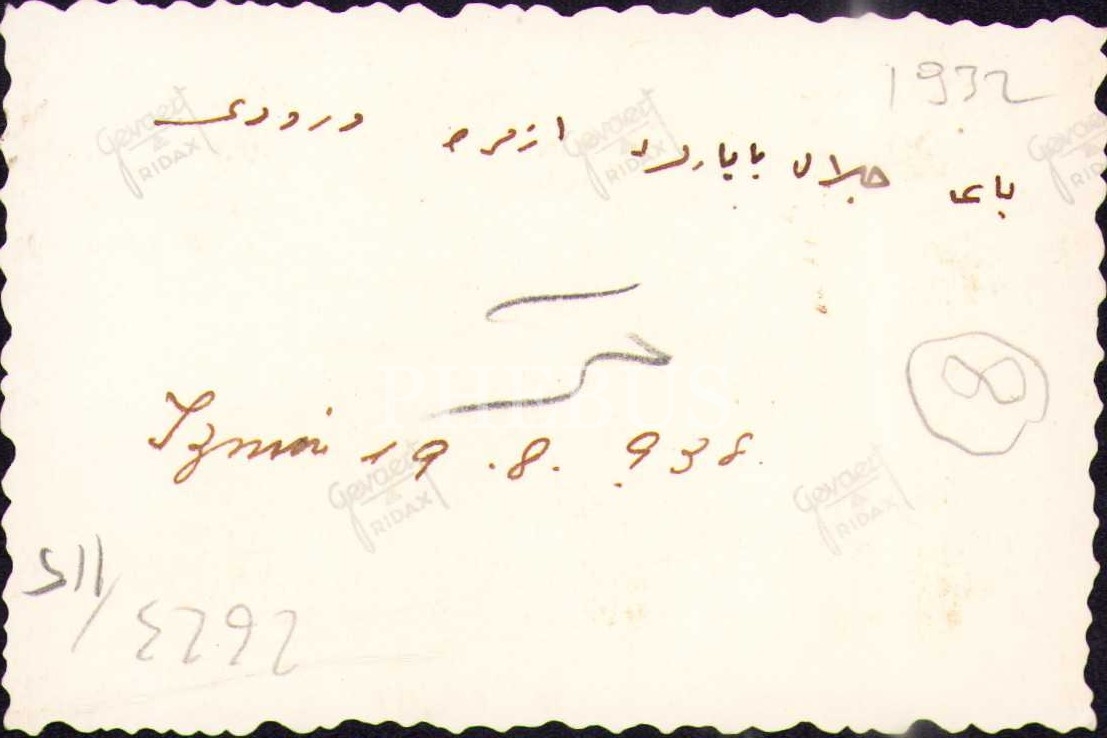 1932
بای جلال بایارك ازمیره ورودی
PHEBUS
Izmir 19.8.938.
Gevaert
RIDAX
Gevaert
RIDAX
Gevaert
RIDAX
Gevaert
RIDAX
Gevaert
RIDAX